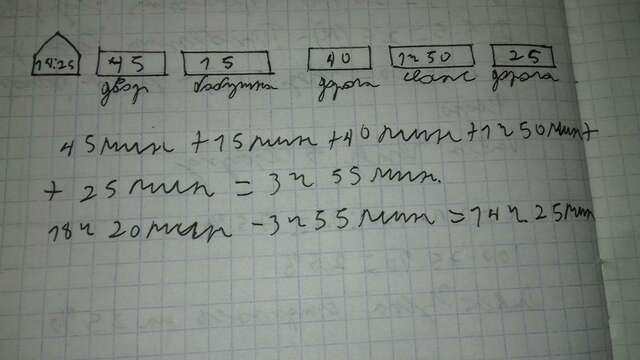 14:25 45 15 40 1ч50 25
двор бабушка дорога сеанс дорога
45 мин + 15 мин + 40 мин + 1ч 50 мин +
+ 25 мин = 3ч 55 мин.
18ч 20 мин - 3ч 55 мин = 14ч 25 мин